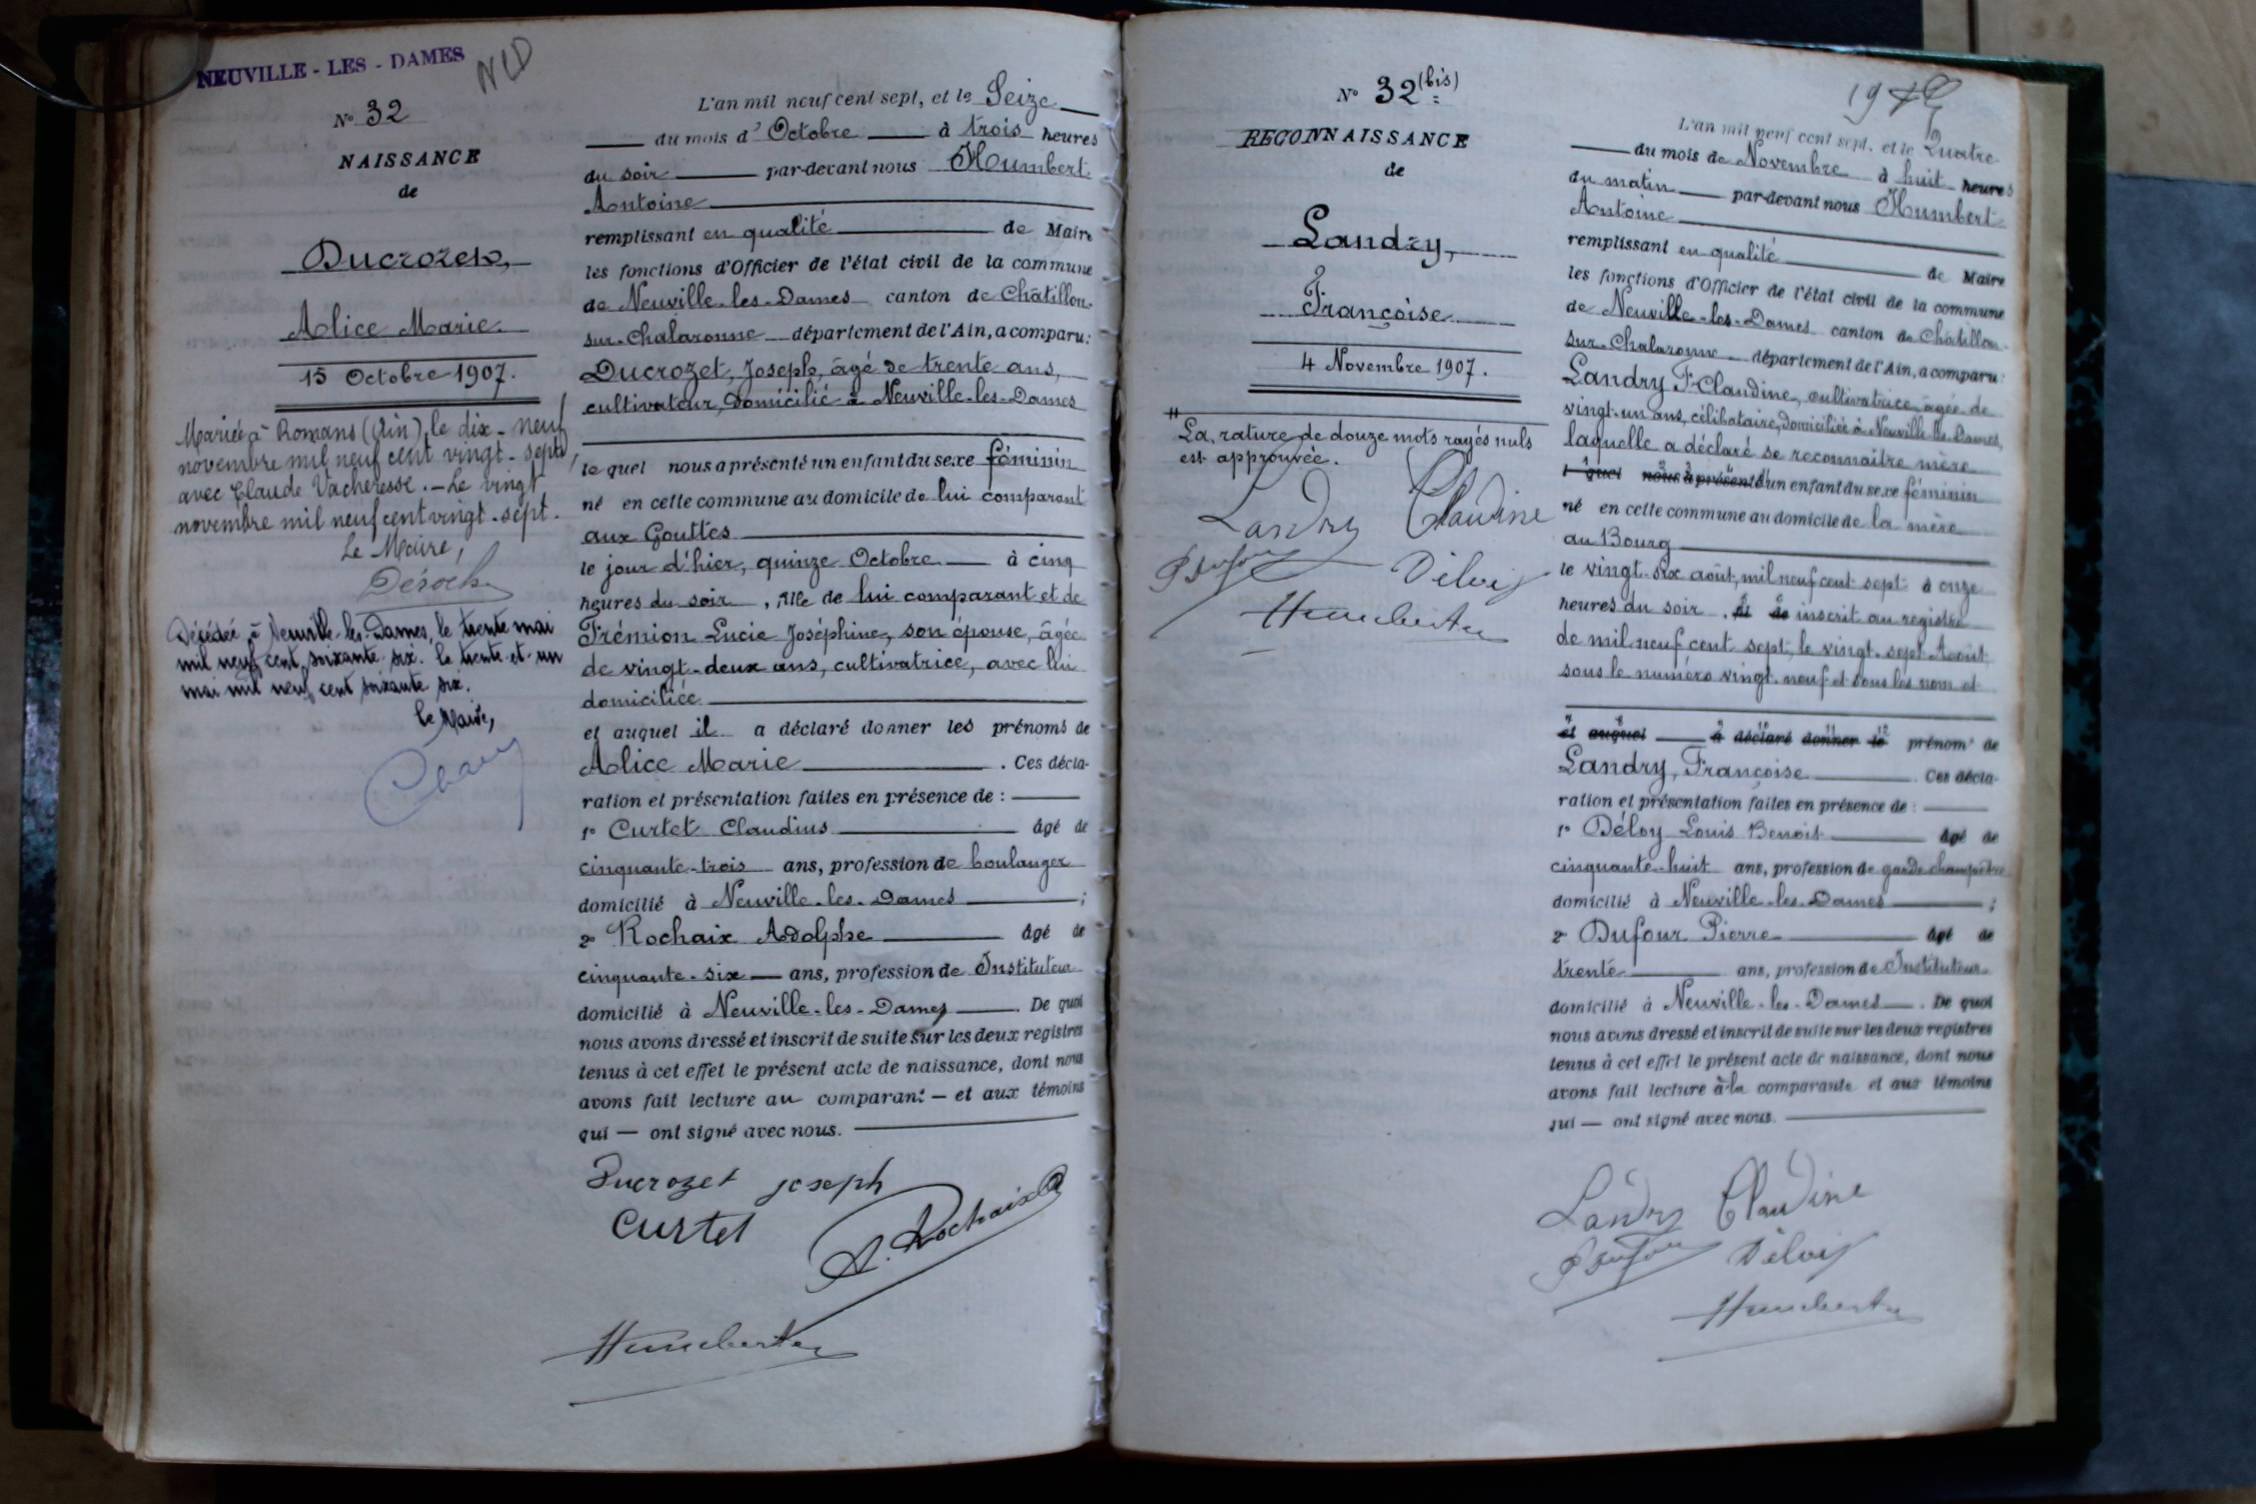 NEUVILLE - LES - DAMES
NLD
N° 32
NAISSANCE
de
Ducrozet,
Alice Marie
15 Octobre 1907.
Mariée à Romans (Ain), le dix-neuf
novembre mil neuf cent vingt-sept,
avec Claude Vacheresse. - Le vingt
novembre mil neuf cent vingt-sept.
Le Maire,
Décédée à Neuville-les-Dames, le trente mai
mil neuf cent soixante six. le trente et un
mai mil neuf cent soixante six.
le Maire,
L'an mil neuf cent sept, et le Seize
du mois d'Octobre à trois heures
du soir par-devant nous Humbert
Antoine
remplissant en qualité de Maire
les fonctions d'Officier de l'état civil de la commune
de Neuville-les-Dames canton de Châtillon-
sur-Chalaronne département de l'Ain, a comparu:
Ducrozet, Joseph, âgé de trente ans,
cultivateur, domicilié à Neuville-les-Dames
lequel nous a présenté un enfant du sexe féminin
né en cette commune au domicile de lui comparant
aux Gouttes
le jour d'hier, quinze Octobre à cinq
heures du soir, fille de lui comparant et de
Frémion Lucie Joséphine, son épouse, âgée
de vingt-deux ans, cultivatrice, avec lui
domiciliée
et auquel il a déclaré donner les prénoms de
Alice Marie. Ces décla-
ration et présentation faites en présence de :
1° Curtet Claudius âgé de
cinquante-trois ans, profession de boulanger
domicilié à Neuville-les-Dames ;
2° Rochaix Adolphe âgé de
cinquante-six ans, profession de Instituteur
domicilié à Neuville-les-Dames. De quoi
nous avons dressé et inscrit de suite sur les deux registres
tenus à cet effet le présent acte de naissance, dont nous
avons fait lecture au comparant — et aux témoins
qui — ont signé avec nous.
Ducrozet joseph
Curtet
A. Rochaix
Humbert
N° 32 (bis)
RECONNAISSANCE
de
Landry,
Françoise
4 Novembre 1907.
La rature de douze mots rayés nuls
est approuvée.
Landry Claudine
P Dufour Déloy
Humbert
L'an mil neuf cent sept, et le Quatre
du mois de Novembre à huit heures
du matin par-devant nous Humbert
Antoine
remplissant en qualité de Maire
les fonctions d'Officier de l'état civil de la commune
de Neuville-les-Dames canton de Châtillon-
sur-Chalaronne département de l'Ain, a comparu:
Landry Claudine, cultivatrice, âgée de
vingt-un ans, célibataire, domiciliée à Neuville-les-Dames,
laquelle a déclaré se reconnaître mère
l quel nous a présenté d'un enfant du sexe féminin
né en cette commune au domicile de la mère
au Bourg
le vingt-six août, mil neuf cent sept à onze
heures du soir, inscrit au registre
de mil neuf cent sept, le vingt-sept Août
sous le numéro vingt-neuf et sous les nom et
et auquel a déclaré donner le prénom de
Landry, Françoise. Ces décla-
ration et présentation faites en présence de :
1° Déloy Louis Benoit âgé de
cinquante-huit ans, profession de garde champêtre
domicilié à Neuville-les-Dames ;
2° Dufour Pierre âgé de
trente ans, profession de Instituteur
domicilié à Neuville-les-Dames. De quoi
nous avons dressé et inscrit de suite sur les deux registres
tenus à cet effet le présent acte de naissance, dont nous
avons fait lecture à la comparante et aux témoins
qui — ont signé avec nous.
Landry Claudine
P Dufour Déloy
Humbert